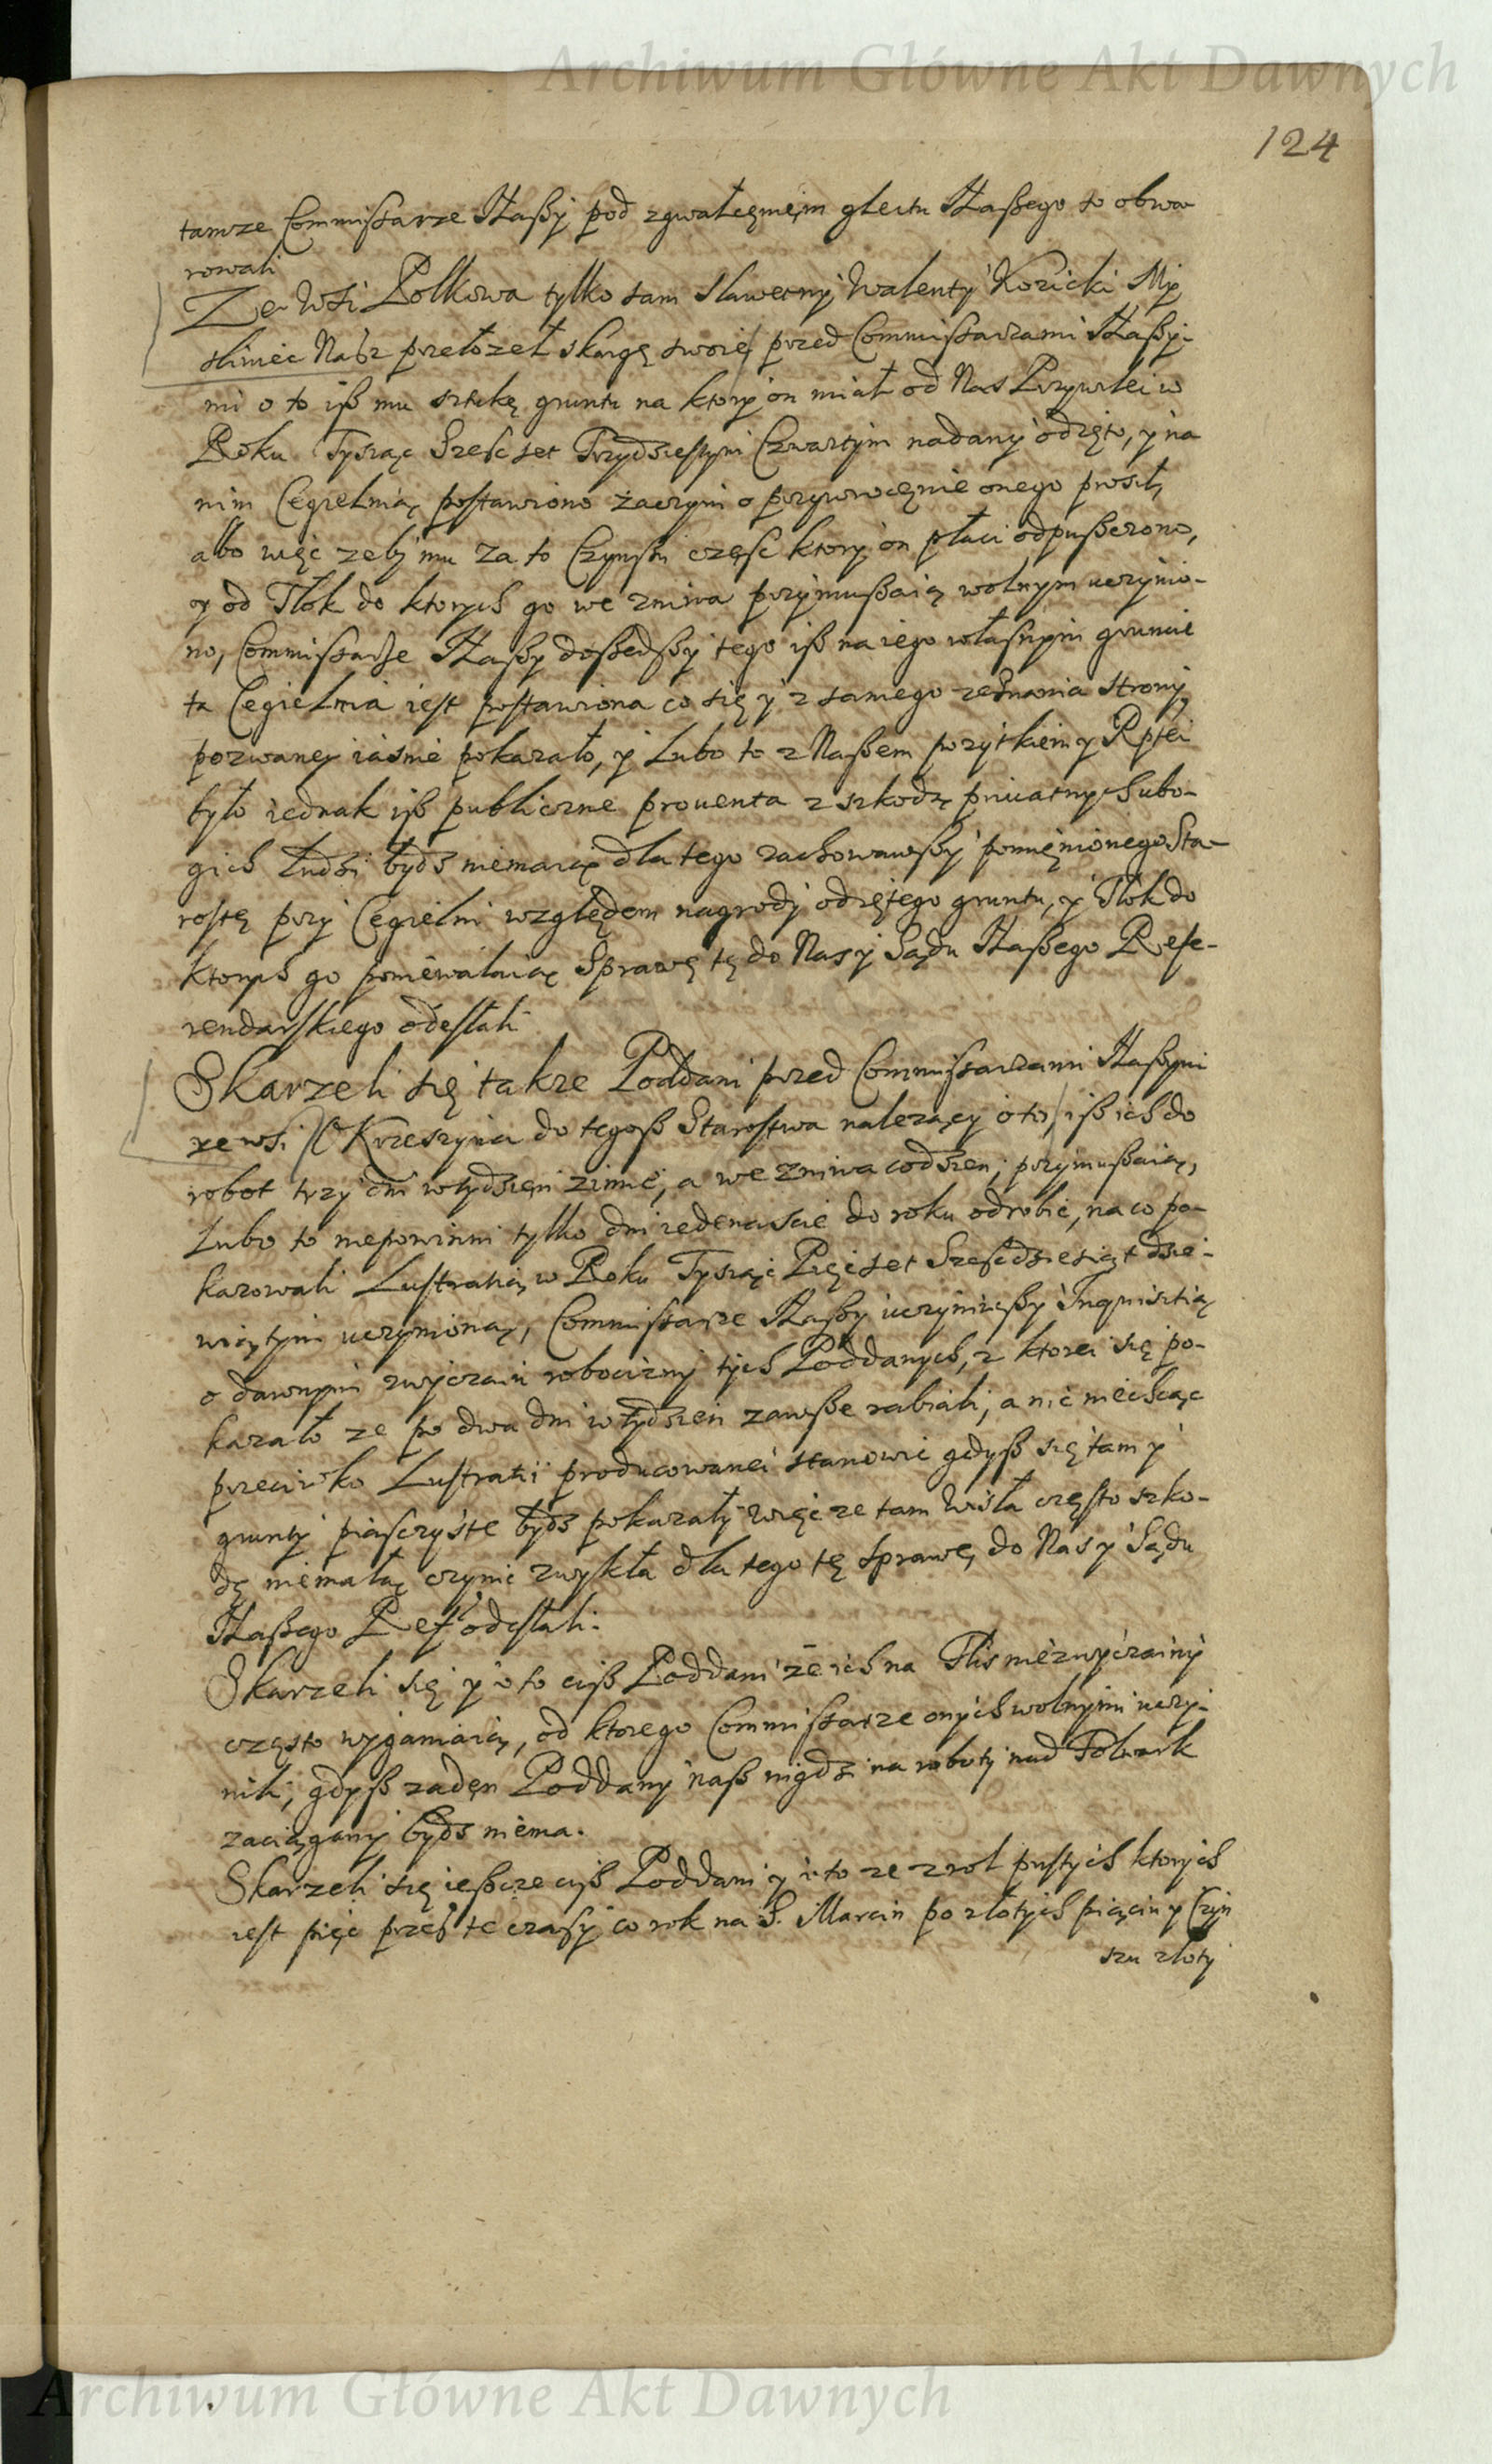 Archiwum Główne Akt Dawnych
124
tamze Commissarze Naßy pod zgwałcęnięm gleitu Naßego to obwa
rowali
Ze Wsi Polkowa tylko sam Sławetny Walenty Kozicki My
sliwiec Nasz przełozeł skargę swoię przed Commissarzami Naßy-
mi o to iß mu sztukę gruntu na ktory on miał od Nas Przywilei w
Roku Tysiąc Szescset Trzydziestym Czwartym nadany odzięto, y na
nim Cegielnią postawiono zaczym o przywrocęnie onego prosił,
abo więc zeby mu za to Czynszu częsc ktory on płaci odpußczono,
y od Tłok do ktorych go we zniwa przymußaią wolnym uczynio-
no, Commissarze Naßy doßedßy tego iß na iego własnym gruncie
ta Cegielnia iest postawiona co się y z samego zeznania strony
pozwaney iasnie pokazało, y Lubo to z Naßem pozytkiem y Rptei
było iednak iß publiczne prouenta z szkodą priuatnych ubo-
gich Ludzi bydz niemaią dla tego zachowawßy pomięnionego Sta-
rostę przy Cegielni względem nagrody odziętego gruntu, y Tłok do
ktorych go poniewalaią Sprawę tę do Nas y Sądu Naßego Refe-
rendarskiego odesłali
Skarzeli się takze Poddani przed Commissarzami Naßymi
ze wsi Krzeszyna do tegoß Starostwa nalezący o to, iß ich do
robot trzy dni w tydzięn zimie, a we zniwa codzien, przymußaią,
Lubo to niepowinni tylko dni iedenascie do roku odrobic, na co po-
kazowali Lustratią w Roku Tysiąc Pięcset Szescdziesiąt dzie-
wiątym uczynioną, Commissarze Naßy uczyniwßy Inquisitią
o dawnym zwyczaiu robocizny tych Poddanych, z ktorei się po-
kazało ze po dwa dni w tydzien zawße rabiali, a nic niechcąc
przeciwko Lustratii producowanei stanowic gdyß się tam y
grunty piasczyste bydz pokazały więc ze tam Wisła często szko-
dę niemałą czynic zwykła dla tego tę sprawę do Nas y Sądu
Naßego Ref. odesłali.
Skarzeli się y o to ciß Poddani ze ich na Flis niezwyczainy
często wyganiaią, od ktorego Commissarze onych wolnymi uczy-
nili, gdyß zadęn Poddany naß nigdzi na roboty nad Folwark
zaciągany bydz niema.
Skarzeli się ießcze ciß Poddani y o to ze z rol pustych ktorych
iest pięc przeß te czasy co rok na S. Marcin po złotych piącin y Czyn
szu złoty
Archiwum Główne Akt Dawnych